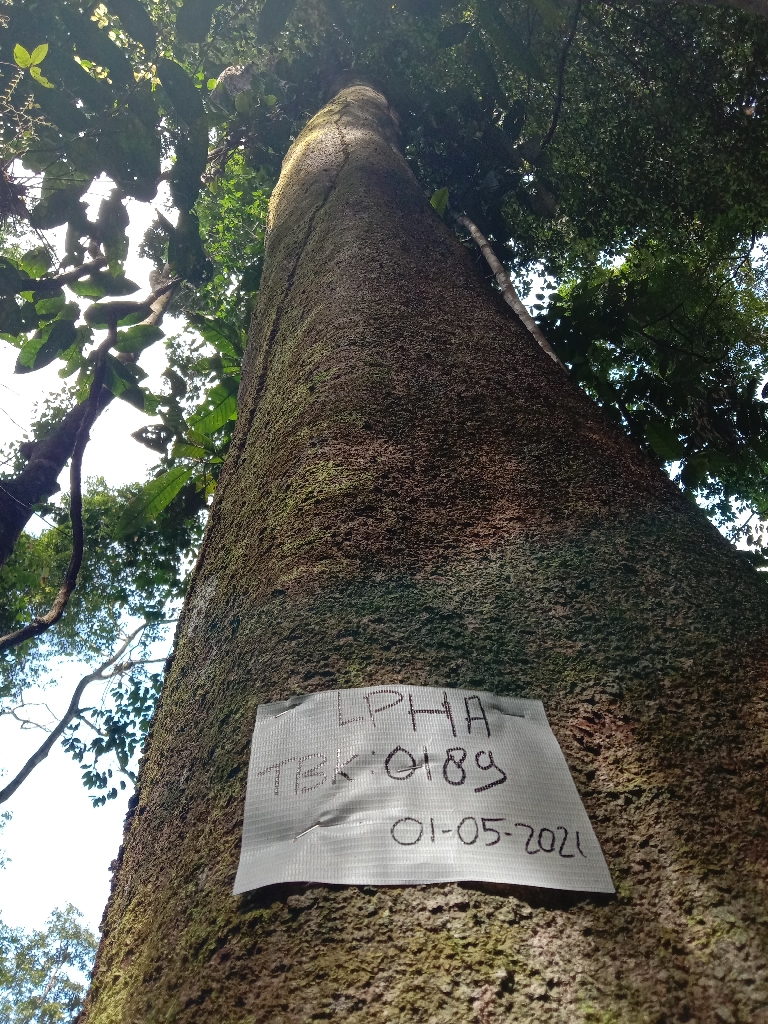 LPHA
TBK: 0189
01-05-2021